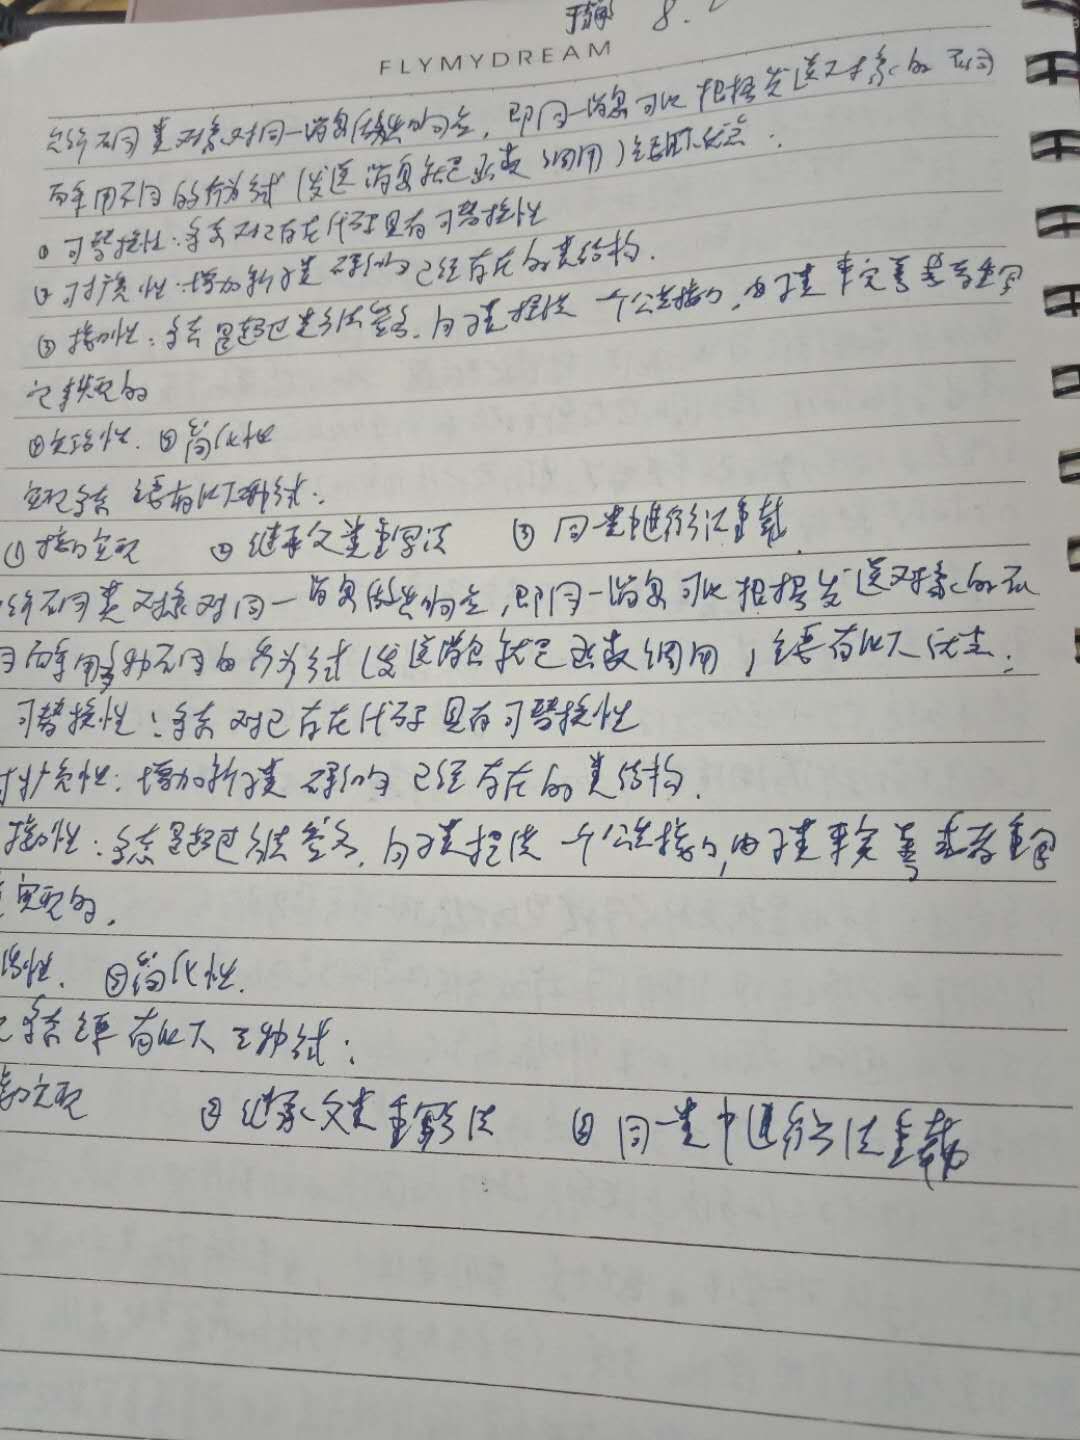 8.
FLYMYDREAM
允许不同类对象对同一消息做出响应，即同一消息可以根据发送对象的不同
而采用不同的行为方式（发送消息就是函数调用）主要有以下优点：
① 可替换性：多态对已存在代码具有可替换性
② 可扩充性：增加新子类不影响已经存在的类结构.
③ 接口性：多态是超过类方法签名，向子类提供一个公共接口，由子类来完善或者重写
它来实现的
④ 灵活性. ⑤ 简化性
实现多态主要有以下三种方式：
① 接口实现 ② 继承父类重写方法 ③ 同一类中进行方法重载
允许不同类对象对同一消息做出响应，即同一消息可以根据发送对象的不
同而采用多种不同的行为方式（发送消息就是函数调用，主要有以下优点：
可替换性：多态对已存在代码具有可替换性
可扩充性：增加新子类不影响已经存在的类结构.
接口性：多态是超过方法签名，向子类提供一个公共接口，由子类来完善或者重写
实现的.
活性. ⑤ 简化性.
多态主要有以下三种方式：
接口实现 ② 继承父类重写方法 ③ 同一类中进行方法重载